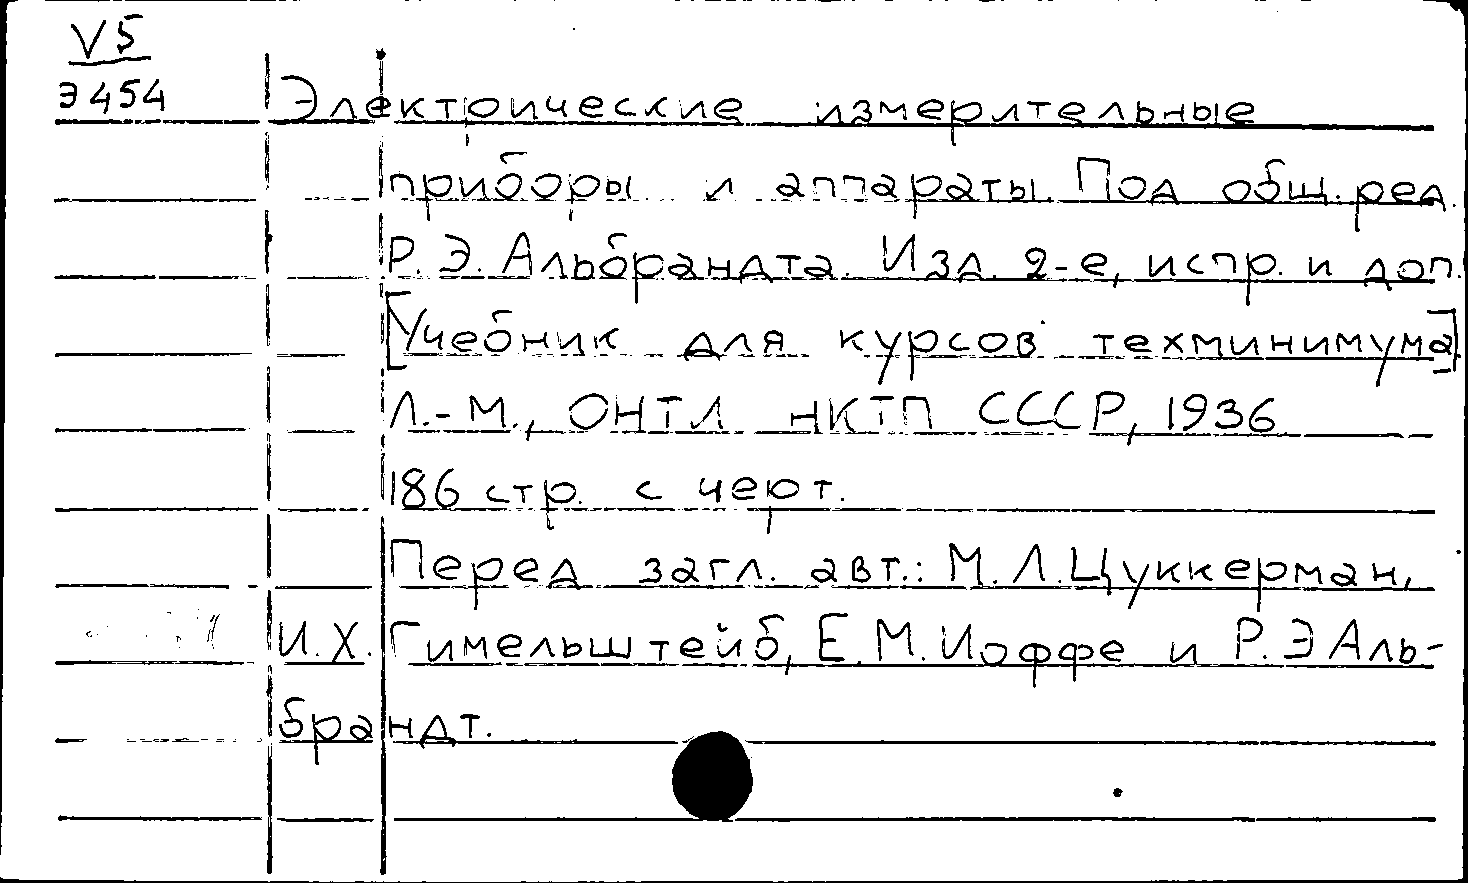 V5
Э454
Электрические измерительные
приборы и аппараты. Под общ. ред.
Р. Э. Альбрандта. Изд. 2-е, испр. и доп.
[Учебник для курсов техминимума]
Л.-М., ОНТИ НКТП СССР, 1936
186 стр. с черт.
Перед загл. авт.: М. Л. Цуккерман,
И. Х. Гимельштейб, Е. М. Иоффе и Р. Э Аль-
брандт.